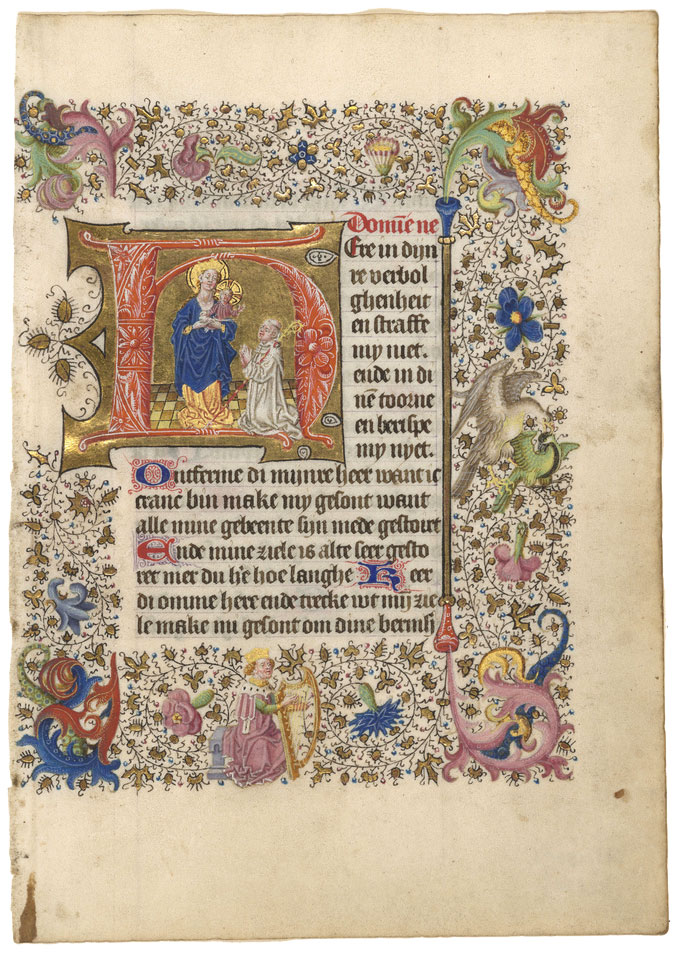 Domīe ne
HEre in dijn
re verbol
ghenheit
en straffe
my niet.
ende in di
nē toorne
en berispe
my nyet.
Ontferme di mijnre heer want ic
cranc bin make my gesont want
alle mine gebeente sijn mede gestoirt
Ende mine ziele is alte seer gesto
ret mer du h'e hoe langhe Keer
di omme here ende trecke wt mij zie
le make mi gesont om dine bermh